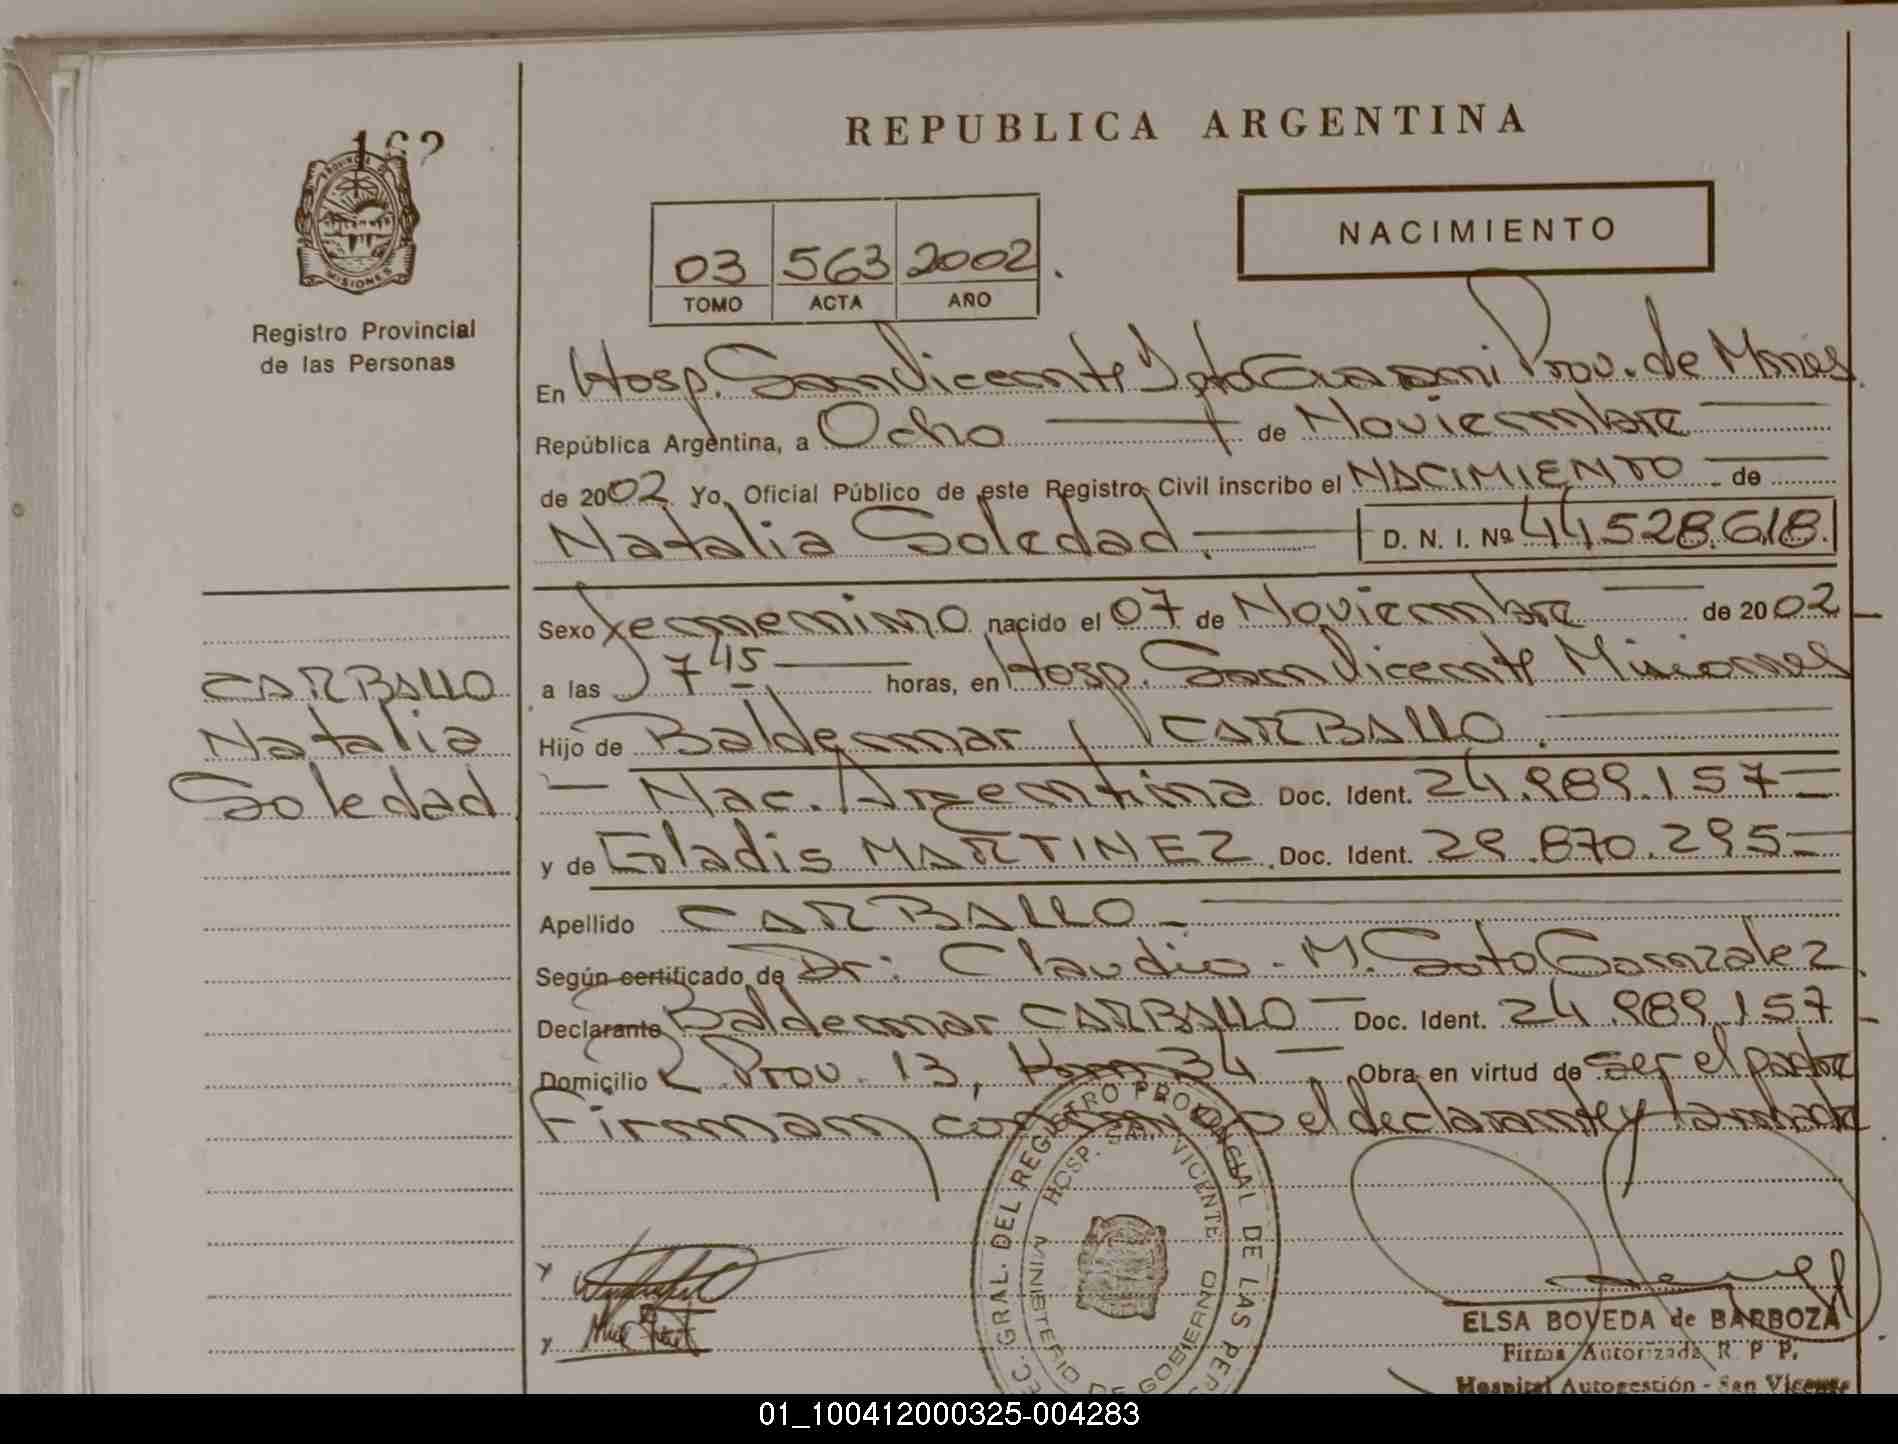 162
REPUBLICA ARGENTINA
PROVINCIA DE MISIONES
Registro Provincial
de las Personas
03 563 2002.
TOMO ACTA AÑO
NACIMIENTO
En Hosp. San Vicente Dpto Guaraní Prov. de Mnes.
República Argentina, a Ocho de Noviembre
de 2002 Yo, Oficial Público de este Registro Civil inscribo el NACIMIENTO de
Natalia Soledad. D. N. I. Nº 44.528.618.
Sexo Femenino nacido el 07 de Noviembre de 2002
a las 7 45 horas, en Hosp. San Vicente Misiones
Hijo de Baldemar CARBALLO.
Nac. Argentina Doc. Ident. 24.989.157
y de Gladis MARTINEZ. Doc. Ident. 29.870.295
Apellido CARBALLO
Según certificado de Dr: Claudio M. Soto Gonzalez
Declarante Baldemar CARBALLO Doc. Ident. 24.989.157
Domicilio R. Prov. 13, Km 34 Obra en virtud de ser el padre
Firman el declarante y la madre
CARBALLO
Natalia
Soledad
y
y
GRAL. DEL REGISTRO PROVINCIAL DE LAS PER
HOSP. SAN VICENTE
MINISTERIO DE GOBIERNO
ELSA BOVEDA de BARBOZA
Firma Autorizada R. P. P.
Hospital Autogestión - San Vicente
01_100412000325-004283